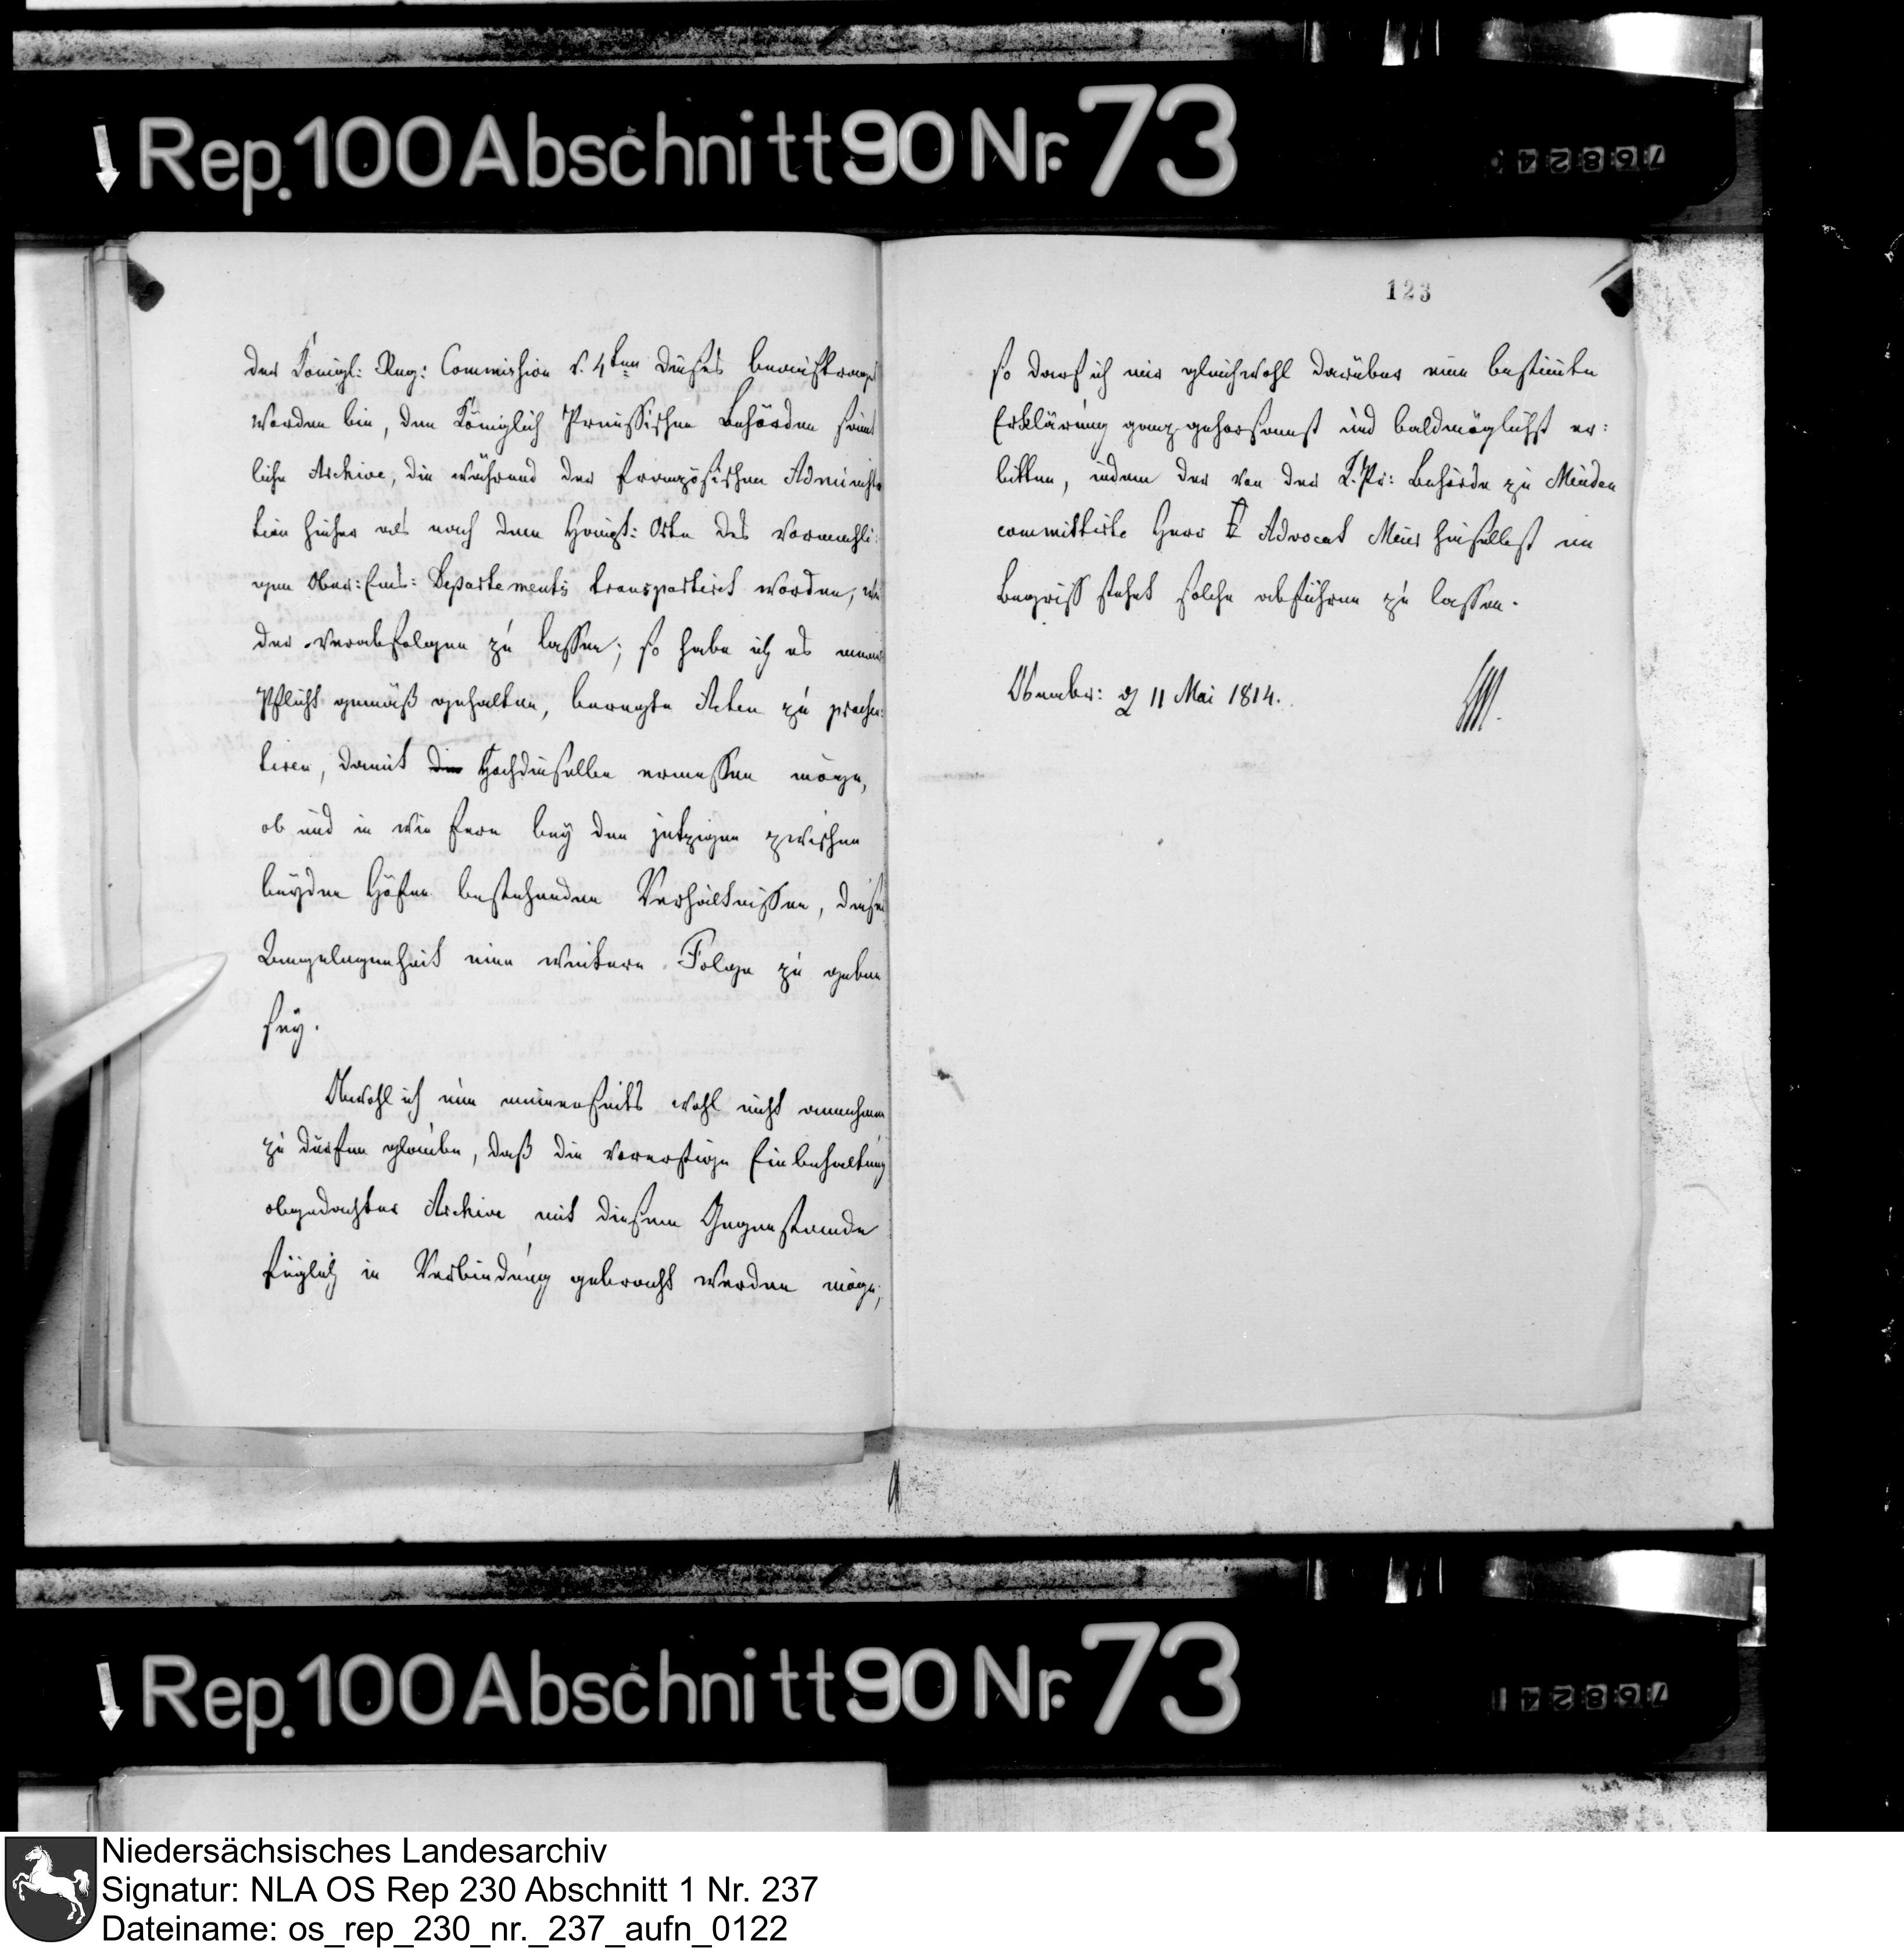 Rep. 100 Abschnitt 90 Nr. 73
76824
der Königl: Reg: Commission v. 4ten dieses beauftragt
worden bin, den Königlich Preussischen Behörden sämt
liche Archive, die während der französischen Administra
tion hieher als nach dem Haupt: Orte des vormahli:
gen Ober: Ems: Departements transportirt worden, wie
der verabfolgen zu lassen; so habe ich es meiner
Pflicht gemäß gehalten, beregte Acten zu
tiren, damit Hochdieselbe ermessen möge,
ob und in wie fern bey den jetzigen zwischen
beyden Höfen bestehenden Verhältnissen, dieser
Angelegenheit eine weitere Folge zu geben
sey.
Obwohl ich nun meinerseits wohl nicht annehmen
zu dürfen glaube, daß die vorerstige Einbehaltung
obgedachter Archive mit diesem Gegenstande
füglich in Verbindung gebracht werden möge;
123
so darf ich mir gleichwohl darüber eine bestimte
Erklärung ganz gehorsamst und baldmöglichst er:
bitten, indem der von der K. Pr: Behörde zu Minden
committirte Herr Advocat Meier hieselbst im
Begriff stehet solche abführen zu lassen.
Osnabr: d 11 Mai 1814.
Rep. 100 Abschnitt 90 Nr. 73
768241
Niedersächsisches Landesarchiv
Signatur: NLA OS Rep 230 Abschnitt 1 Nr. 237
Dateiname: os_rep_230_nr._237_aufn_0122